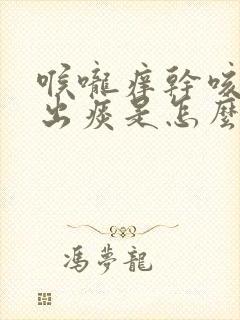 喉嚨痒幹咳
出痰是怎麼
馮夢龍